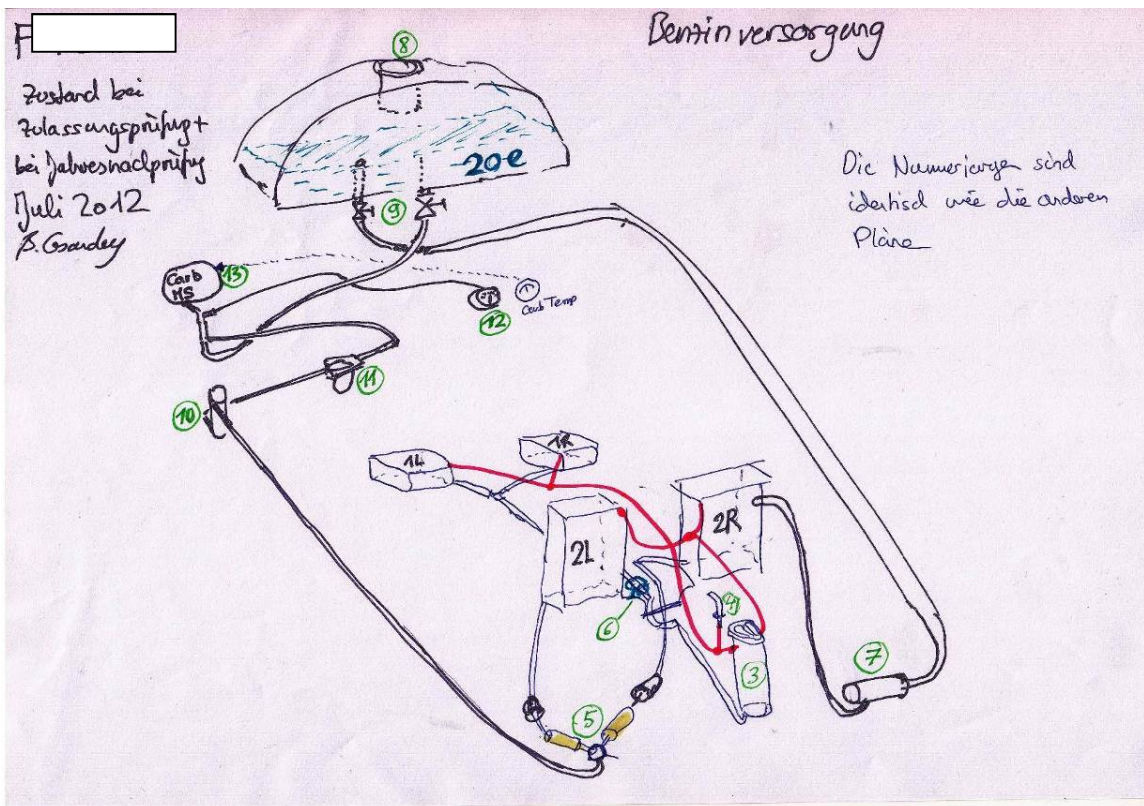 Benzinversorgung
F
Zustand bei
Zulassungsprüfung +
bei Jahresnachprüfung
Juli 2012
8
20 l
9
Die Numerierungen sind
identisch wie die anderen
Pläne
Carb
HS
13
12
Carb Temp
11
10
1L
1R
2L
2R
6
4
3
7
5